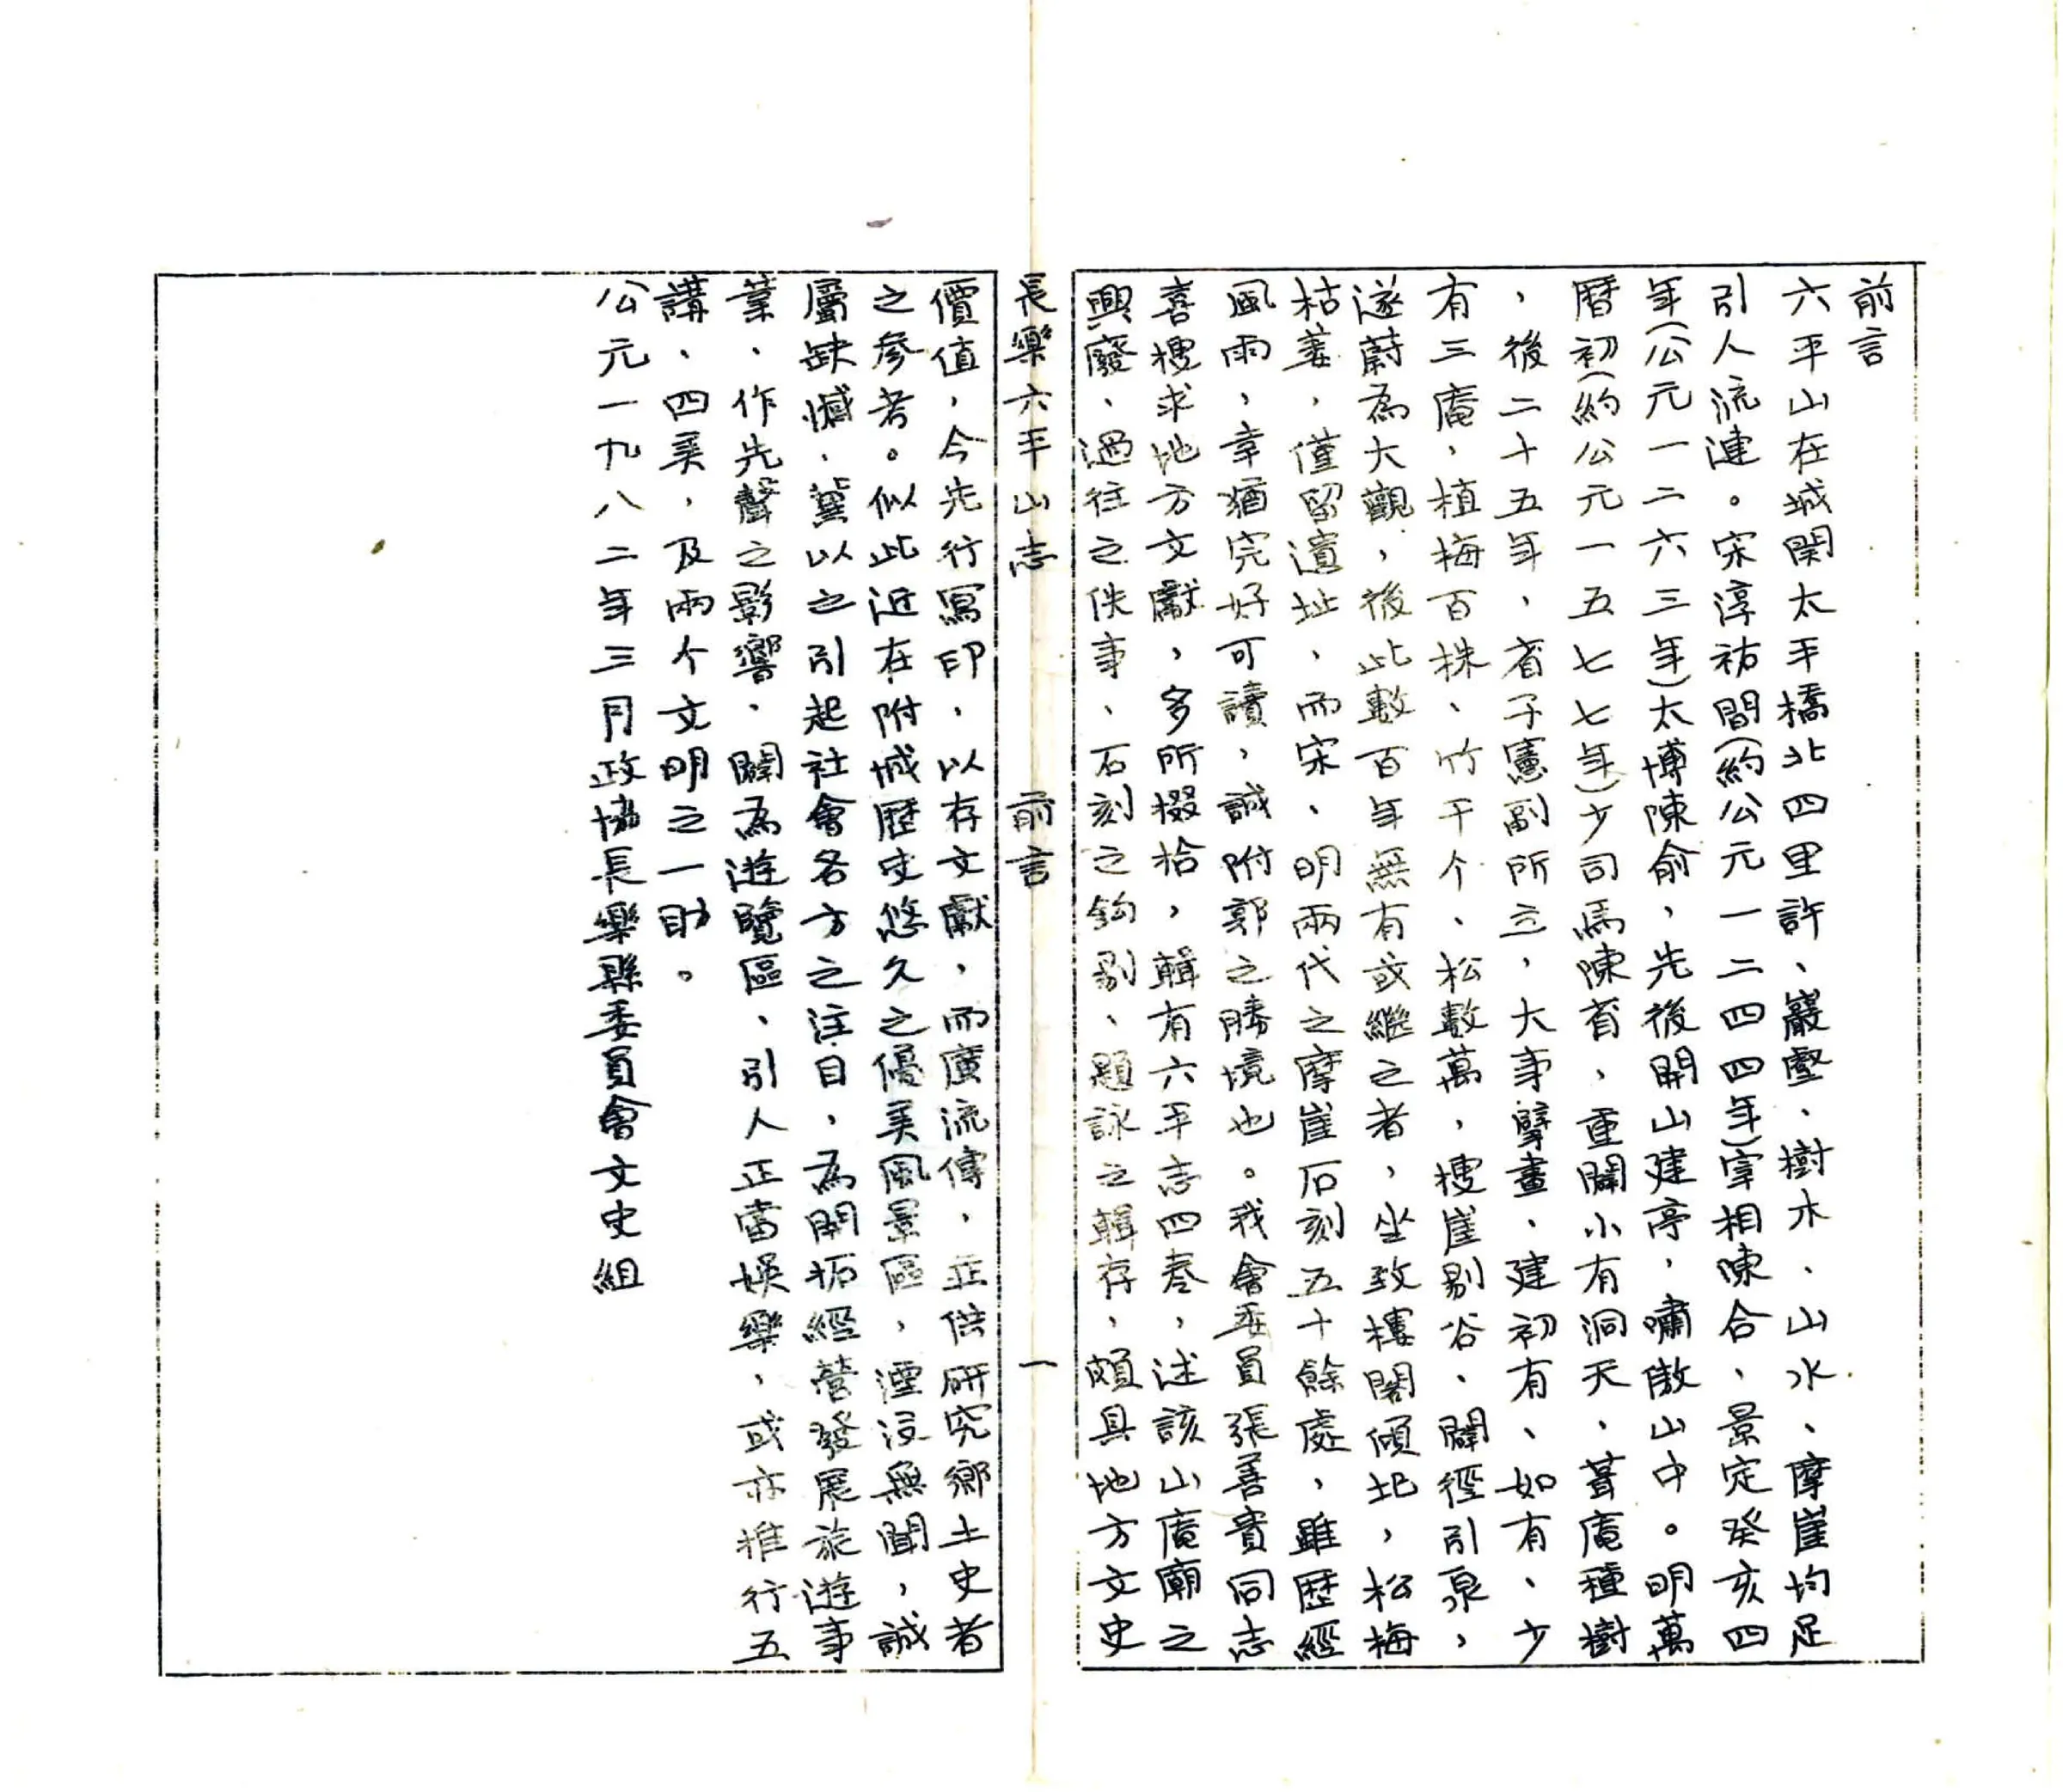 前言
六平山在城関太平橋北四里許、巖壑、樹木、山水、摩崖均足
引人流連。宋淳祐間(約公元一二四四年)宰相陳合、景定癸亥四
年(公元一二六三年)太博陳俞，先後開山建亭，嘯傲山中。明萬
曆初(約公元一五七七年)少司馬陳省，重闢小有洞天、葺庵種樹
，後二十五年，省子憲副所立，大事擘畫、建初有、如有、少
有三庵，植梅百株、竹千个、松數萬，搜崖剔谷、闢徑引泉，
遂蔚為大觀，後此數百年無有或繼之者，坐致樓閣傾圮，松梅
枯萎，僅留遺址，而宋、明兩代之摩崖石刻五十餘處，雖歷經
風雨，幸猶完好可讀，誠附郭之勝境也。我會委員張善貴同志
喜搜求地方文獻，多所掇拾，輯有六平志四卷，述該山庵廟之
興廢、過往之佚事、石刻之鈎剔、題詠之輯存，頗具地方文史
長樂六平山志　前言　一
價值，今先行寫印，以存文獻，而廣流傳，正供研究鄉土史者
之參考。似此近在附城歷史悠久之優美風景區，湮沒無聞，誠
屬缺憾．冀以之引起社會各方之注目，為開拓經營發展旅遊事
業、作先聲之影響．闢為遊覽區、引人正當娛樂，或亦推行五
講、四美，及兩个文明之一助。
公元一九八二年三月政協長樂縣委員會文史組